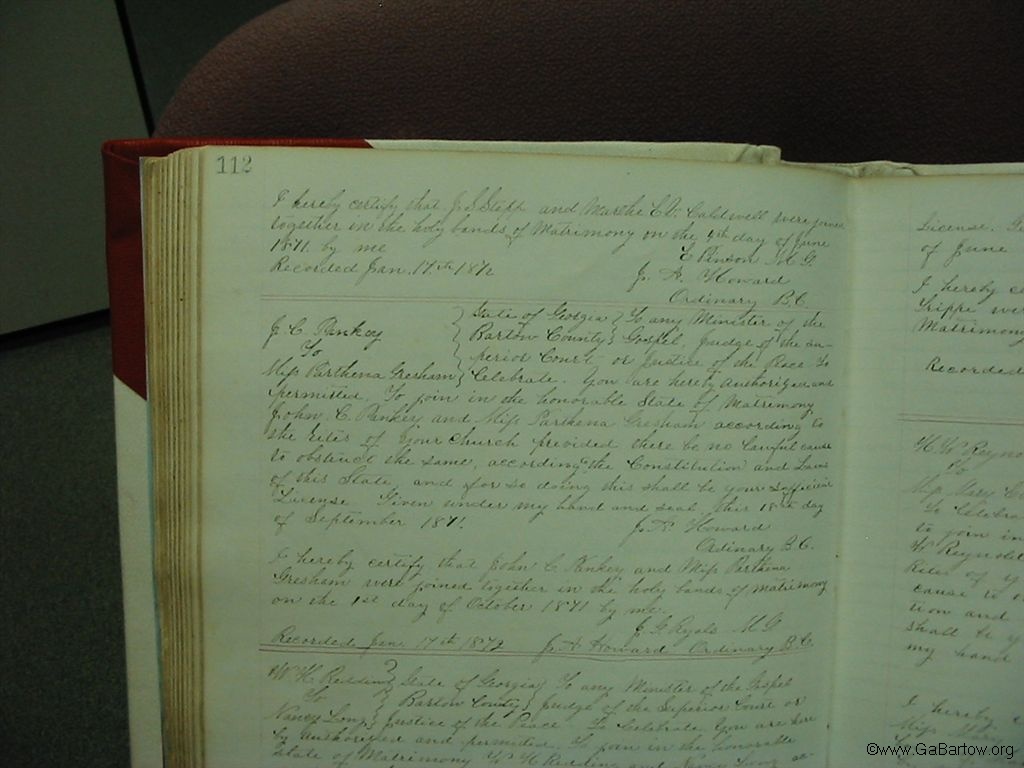 112
I hereby certify that J. S. Stepp and Martha E. Caldwell were joined
together in the holy bands of Matrimony on the 4th day of June
1871. by me
E Pinson M.G.
Recorded Jan. 17th 1872
J. A. Howard
Ordinary B.C.
J. C. Pankey
To
Miss Parthena Gresham
State of Georgia
Bartow County
To any Minister of the
Gospel, Judge of the Su-
perior Court or Justice of the Peace To
Celebrate. You are hereby authorized and
permitted. To join in the honorable State of Matrimony
John. C. Pankey and Miss Parthena Gresham according to
the rites of your Church provided there be no lawful cause
to obstruct the same, according the Constitution and Laws
of this State and for so doing this shall be your sufficient
License. Given under my hand and seal. this 18th day
of September 1871.
J. A. Howard
Ordinary B.C.
I hereby certify that John C. Pankey and Miss Parthena
Gresham were joined together in the holy bands of matrimony
on the 1st day of October 1871 by me.
J. G. Ryals M G
Recorded Jan. 17th 1872 J. A Howard Ordinary B.C.
W. H. Redding
To
Nancy Long
State of Georgia
Bartow County
To any Minister of the Gospel
Judge of the Superior Court or
Justice of the Peace To Celebrate. You are here
by authorized and permitted. To join in the honorable
State of Matrimony W. H Redding and Nancy Long ac-
License.
of June
I hereby ce
Trippe wer
Matrimony
Recorded
H. W. Reyno
To
Miss Mary
To Celebra
to join in
W Reynold
Rites of y
cause to o
tion and
shall be y
my hand
I hereby c
Miss Mary
©www.GaBartow.org